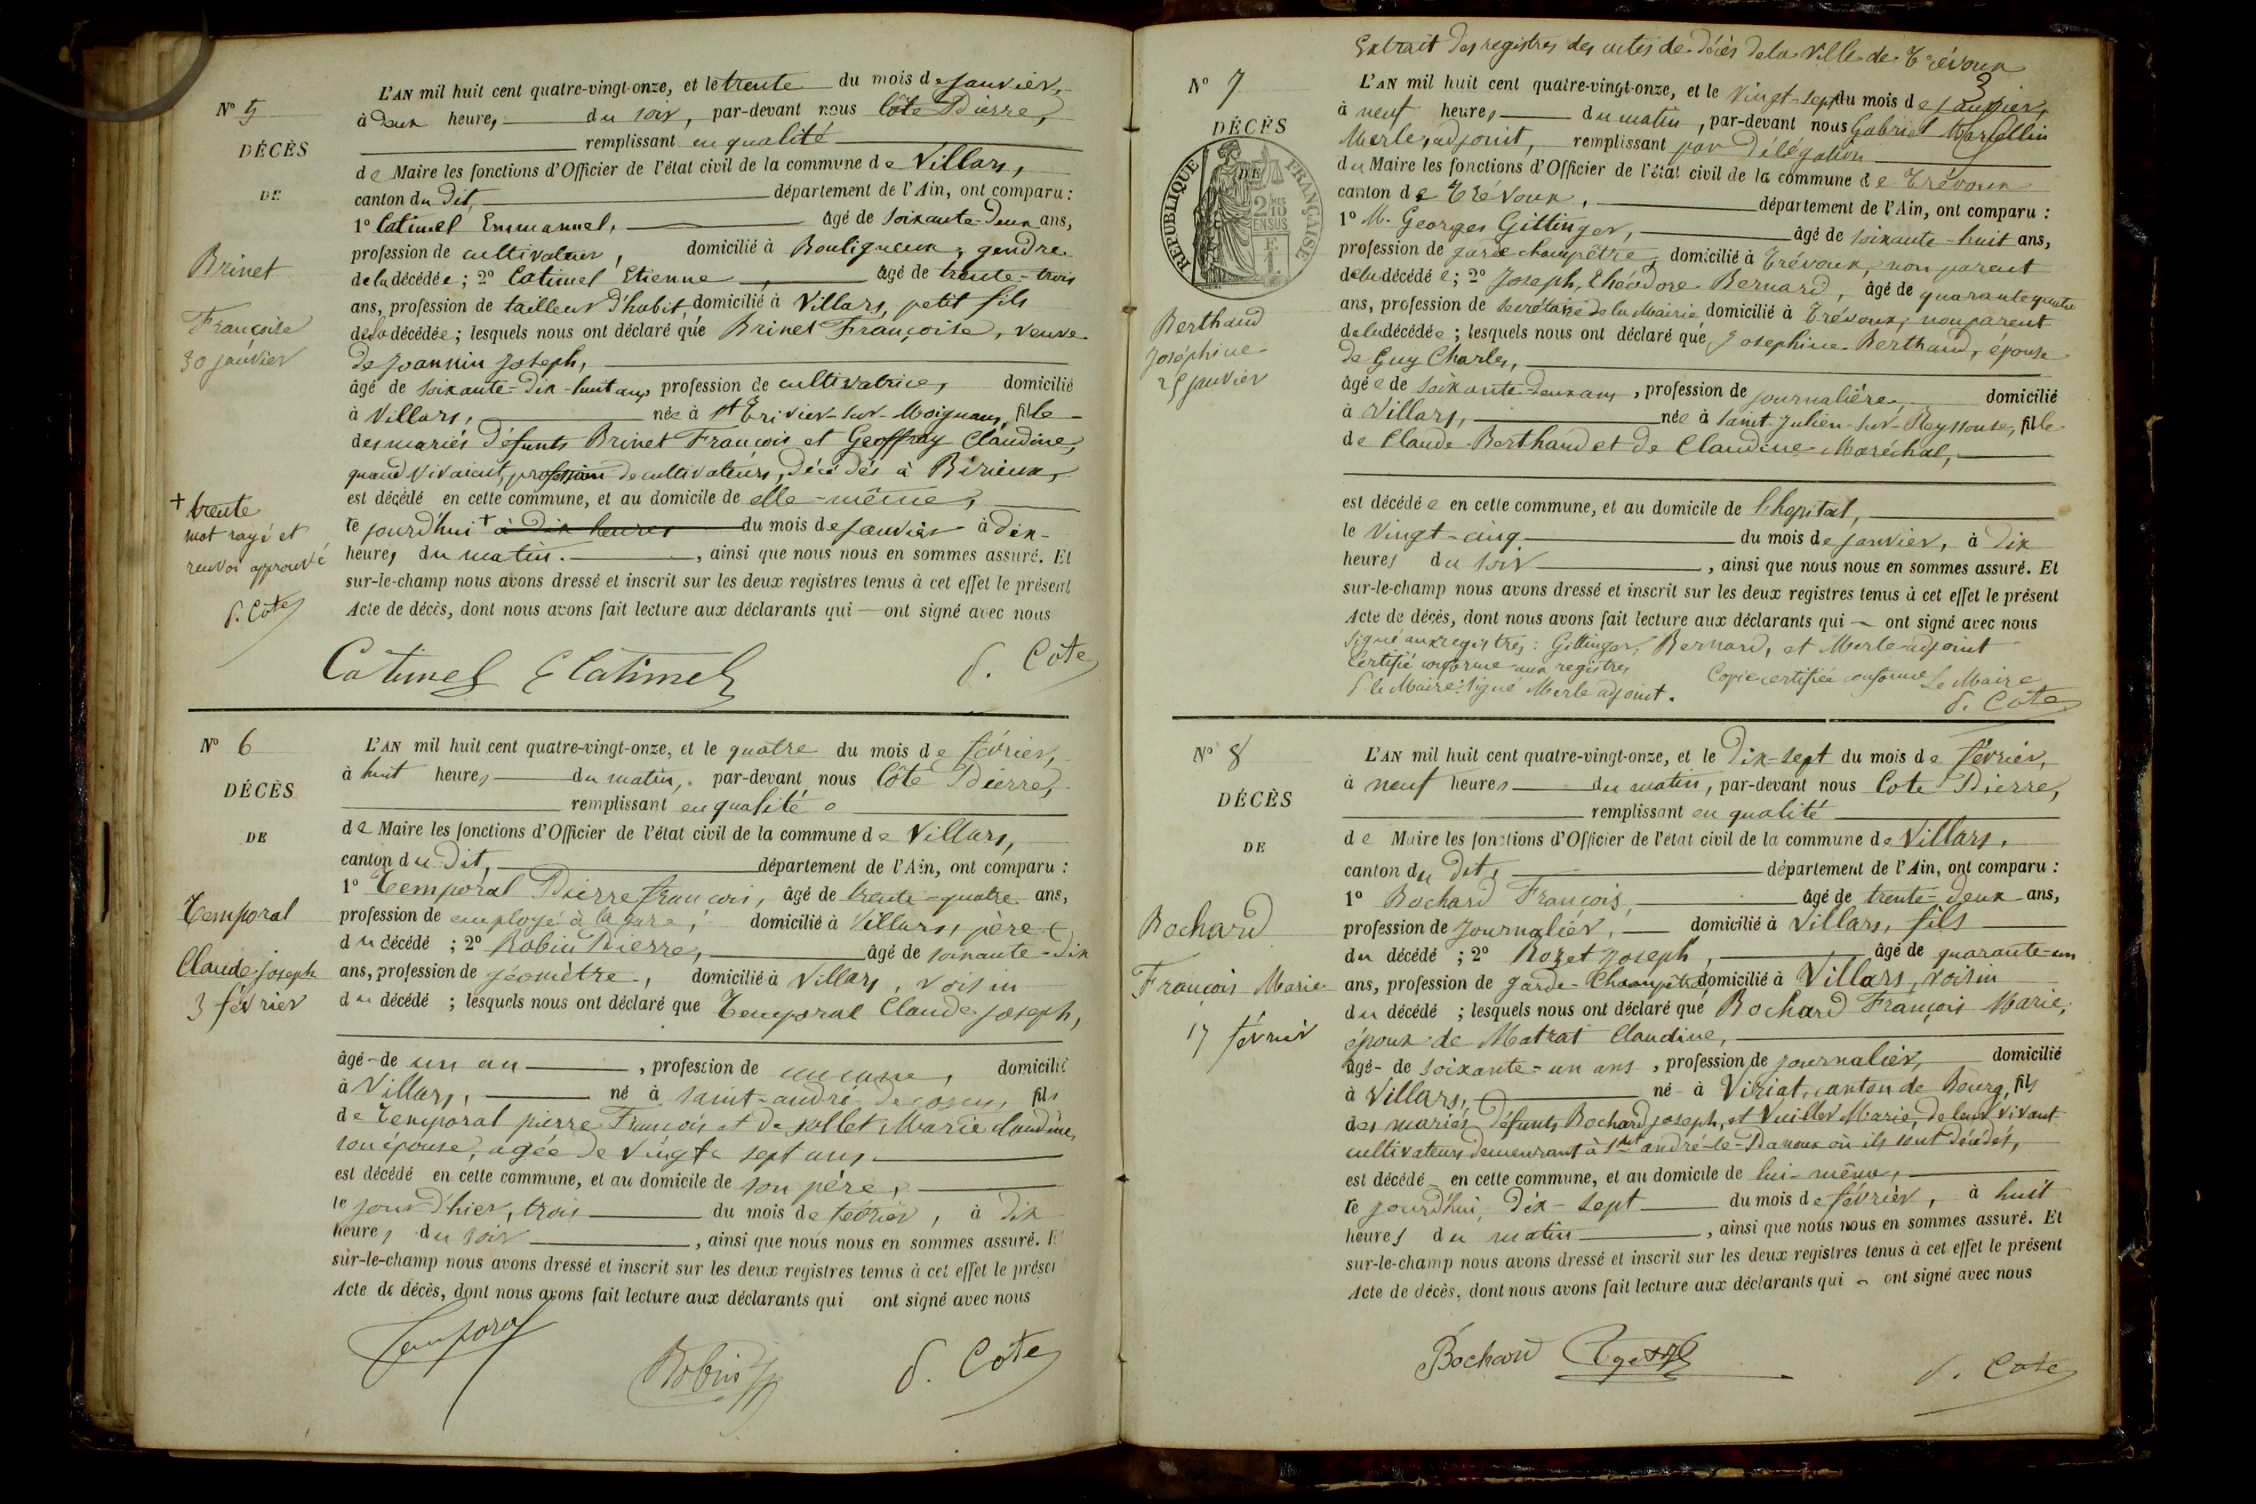 L'AN mil huit cent quatre-vingt-onze, et le trente du mois de janvier,
N° 5
à deux heures du soir, par-devant nous Côte Pierre,
remplissant en qualité
DÉCÈS
de Maire les fonctions d'Officier de l'état civil de la commune de Villars,
canton du dit, département de l'Ain, ont comparu :
DE
1° Catimel Emmanuel, âgé de soixante-deux ans,
profession de cultivateur, domicilié à Bouligneux, gendre
Brinet
de la décédée ; 2° Catimel Etienne, âgé de trente-trois
ans, profession de tailleur d'habit, domicilié à Villars, petit fils
Françoise
de la décédée ; lesquels nous ont déclaré que Brinet Françoise, veuve
30 janvier
de Joannin Joseph,
âgé de soixante-dix-huit ans profession de cultivatrice, domicilié
à Villars, née à St Trivier-sur-Moignans, fille
des mariés défunts Brinet François et Geoffray Claudine,
quand vivaient, profession de cultivateurs, décédés à Birieux,
est décédé en cette commune, et au domicile de elle-même,
+ trente
mot rayé et
renvoi approuvé
P. Cote
le jourd'hui + à dix heures du mois de janvier à dix
heures du matin, ainsi que nous nous en sommes assuré. Et
sur-le-champ nous avons dressé et inscrit sur les deux registres tenus à cet effet le présent
Acte de décès, dont nous avons fait lecture aux déclarants qui — ont signé avec nous
Catimel E Catimel P. Cote
N° 6
L'AN mil huit cent quatre-vingt-onze, et le quatre du mois de février,
à huit heures du matin, par-devant nous Côte Pierre,
DÉCÈS
remplissant en qualité
DE
de Maire les fonctions d'Officier de l'état civil de la commune de Villars,
canton du dit, département de l'Ain, ont comparu :
1° Temporal Pierre françois, âgé de trente-quatre ans,
Temporal
profession de employé à la gare, domicilié à Villars, père
du décédé ; 2° Robin Pierre, âgé de soixante-dix
Claude Joseph
ans, profession de géomètre, domicilié à Villars, voisin
3 février
du décédé ; lesquels nous ont déclaré que Temporal Claude Joseph,
âgé de un an, profession de aucune, domicilié
à Villars, né à Saint-andré de corcy, fils
de Temporal pierre François et de jollet Marie Claudine,
son épouse, agée de vingt sept ans
est décédé en cette commune, et au domicile de son père,
le jour d'hier, trois du mois de février, à dix
heures du soir, ainsi que nous nous en sommes assuré. E
sur-le-champ nous avons dressé et inscrit sur les deux registres tenus à cet effet le présen
Acte de décès, dont nous avons fait lecture aux déclarants qui ont signé avec nous
Temporal Robin P. Cote
Extrait des registres des actes de décès de la Ville de Trévoux
3
N° 7
L'AN mil huit cent quatre-vingt-onze, et le vingt-sept du mois de janvier,
à neuf heures du matin, par-devant nous Gabriel Marcellin
DÉCÈS
Merle, adjoint, remplissant par délégation
du Maire les fonctions d'Officier de l'état civil de la commune de Trévoux
DE
REPUBLIQUE FRANÇAISE
2 10 EN SUS
canton de Trévoux, département de l'Ain, ont comparu :
1° M. Georges Gittinger, âgé de soixante-huit ans,
profession de garde champêtre, domicilié à Trévoux, non parent
de la décédée ; 2° Joseph, Théodore Bernard, âgé de quarante quatre
ans, profession de secrétaire de la Mairie domicilié à Trévoux, non parent
Berthaud
Joséphine
25 janvier
de la décédée ; lesquels nous ont déclaré que Josephine Berthaud, épouse
de Guy Charles,
âgée de soixante-deux ans, profession de journalière domicilié
à Villars, née à Saint-Julien-sur-Reyssouse, fille
de Claude Berthaud et de Claudine Maréchal,
est décédée en cette commune, et au domicile de l'hopital,
le vingt-cinq du mois de janvier, à dix
heures du soir, ainsi que nous nous en sommes assuré. Et
sur-le-champ nous avons dressé et inscrit sur les deux registres tenus à cet effet le présent
Acte de décès, dont nous avons fait lecture aux déclarants qui ont signé avec nous
Signé aux registres : Gittinger, Bernard, et Merle adjoint
Certifié conforme aux registres
P le Maire : signé Merle adjoint.
Copie certifiée conforme Le Maire
P. Cote
N° 8
L'AN mil huit cent quatre-vingt-onze, et le dix-sept du mois de février,
à neuf heures du matin, par-devant nous Cote Pierre,
DÉCÈS
remplissant en qualité
de Maire les fonctions d'Officier de l'état civil de la commune de Villars,
DE
canton du dit, département de l'Ain, ont comparu :
1° Bochard François, âgé de trente-deux ans,
Bochard
profession de Journalier, domicilié à Villars, fils
du décédé ; 2° Rozet Joseph, âgé de quarante-un
François Marie
ans, profession de garde-Champêtre domicilié à Villars, voisin
du décédé ; lesquels nous ont déclaré que Bochard François Marie,
17 février
époux de Matrat Claudine,
âgé de soixante-un ans, profession de journalier, domicilié
à Villars, né à Viriat, canton de Bourg, fils
des mariés défunts Bochard Joseph, et Vuiller Marie, de leur vivant
cultivateurs demeurant à St andré-le-Panoux où ils sont décédés,
est décédé en cette commune, et au domicile de lui-même,
le jourd'hui, dix-sept du mois de février, à huit
heures du matin, ainsi que nous nous en sommes assuré. Et
sur-le-champ nous avons dressé et inscrit sur les deux registres tenus à cet effet le présent
Acte de décès, dont nous avons fait lecture aux déclarants qui ont signé avec nous
Bochard P. Cote